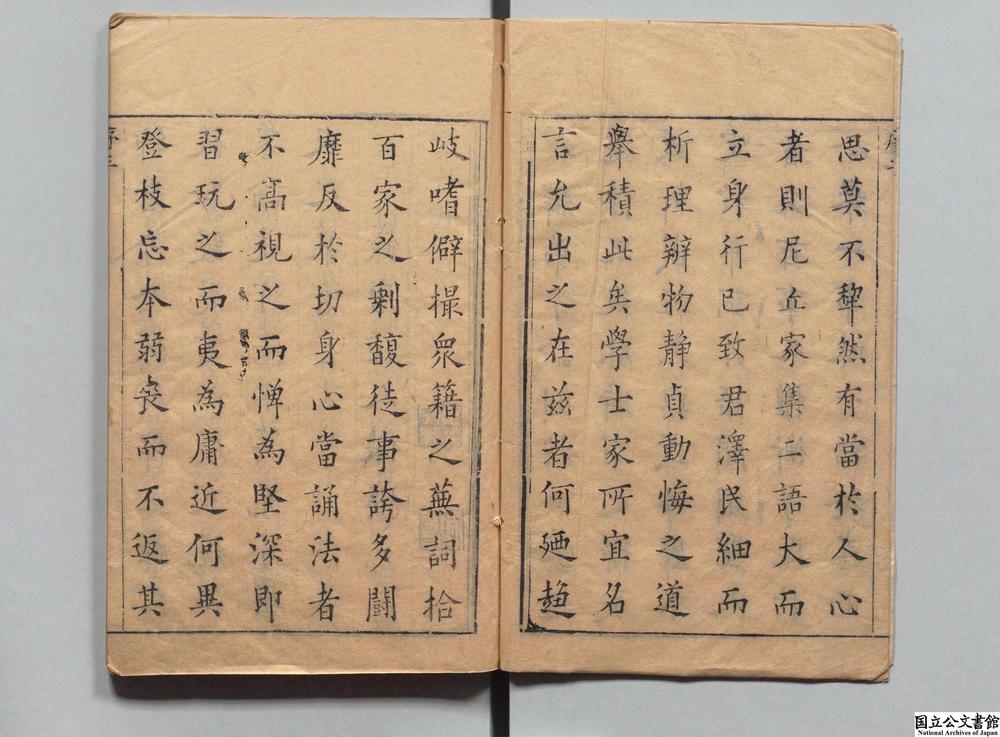 思莫不犂然有當於人心
者則尼丘家集二語大而
立身行已致君澤民細而
析理辨物静貞動悔之道
舉積此矣學士家所宜名
言允出之在兹者何廼趋
岐嗜僻撮衆籍之蕪詞拾
百家之剩馥徒事誇多鬪
靡反於切身心當誦法者
不高視之而憚為堅深即
習玩之而夷為庸近何異
登枝忘本弱喪而不返其
国立公文書館
National Archives of Japan